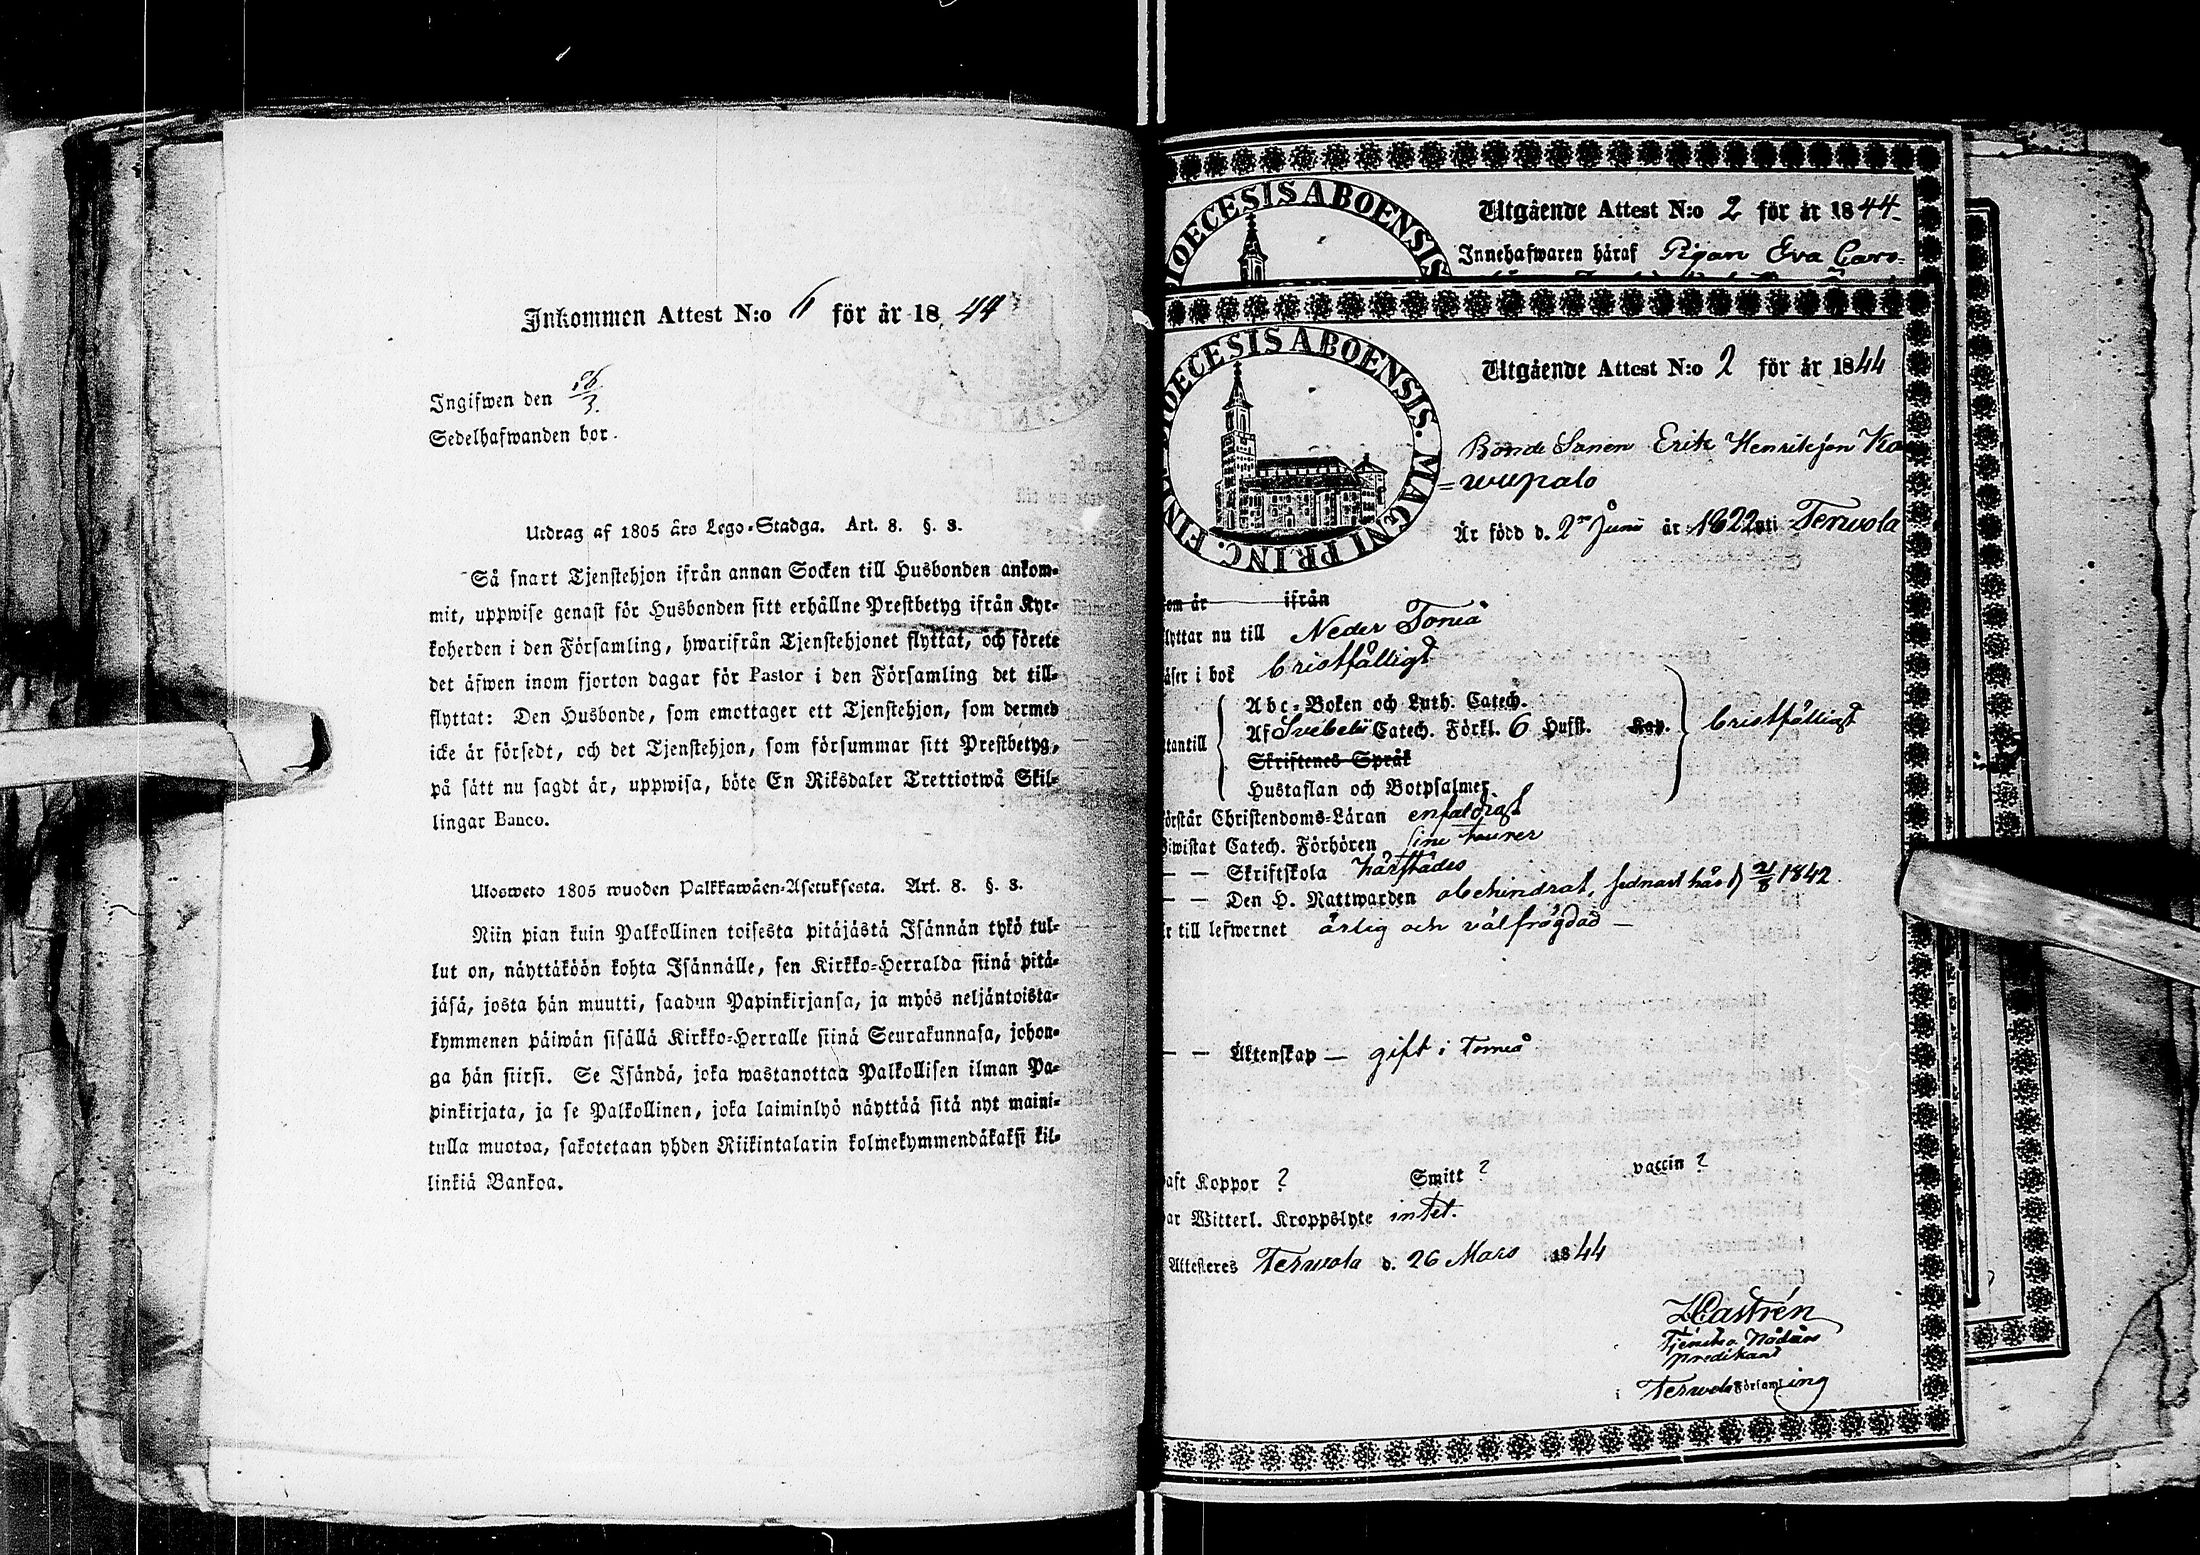 Inkommen Attest N:o 6 för år 1844
Ingifwen den 26/3.
Sedelhafwanden bor.
Utdrag af 1805 års Lego-Stadga. Art. 8. §. 3.
Så snart Tjenstehjon ifrån annan Socken till Husbonden ankom-
mit, uppwise genast för Husbonden sitt erhållne Prestbetyg ifrån Kyr-
koherden i den Församling, hwarifrån Tjenstehjonet flyttat, och förete
det äfwen inom fjorton dagar för Pastor i den Församling det till-
flyttat: Den Husbonde, som emottager ett Tjenstehjon, som dermed
icke är försedt, och det Tjenstehjon, som försummar sitt Prestbetyg,
på sätt nu sagdt är, uppwisa, böte En Riksdaler Trettiotwå Skil-
lingar Banco.
Ulosweto 1805 wuoden Palkkawäen-Asetuksesta. Art. 8. §. 3.
Niin pian kuin Palkollinen toisesta pitäjästä Isännän tykö tul-
lut on, näyttäköön kohta Isännälle, sen Kirkko-Herralda siinä pitä-
jäsä, josta hän muutti, saadun Papinkirjansa, ja myös neljäntoista-
kymmenen päiwän sisällä Kirkko-Herralle siinä Seurakunnasa, johon-
ga hän siirsi. Se Isändä, joka wastanottaa Palkollisen ilman Pa-
pinkirjata, ja se Palkollinen, joka laiminlyö näyttää sitä nyt maini-
tulla muotoa, sakotetaan yhden Riikintalarin kolmekymmendäkaksi kil-
linkiä Bankoa.
DIOECESIS ABOENSIS
Utgående Attest N:o 2 för år 1844.
Innehafwaren häraf Pigan Eva Cars-
DIOECESIS ABOENSIS. MAGNI PRINC. FINL
Utgående Attest N:o 2 för år 1844
Bonde Sonen Erik Henriksson Ko
=wupalo
Är född d. 2 Juni år 1822 uti Terwola
om år ifrån
lyttar nu till Neder Torneå
äser i bok bristfälligt
Abc-Boken och Luth. Catech.
tantill Af Svebelii Catech. Förkl. 6 Hufst. Kap. bristfälligt
Skriftenes Språk
Hustaflan och Botpsalmer
örstår Christendoms-Läran enfaldigt
iwistat Catech. Förhören sine turer
— — Skriftskola härstädes
— — Den H. Nattwarden obehindrat, sednast här d 21/8 1842.
r till lefwernet ärlig och välfrögdad —
— — Äktenskap — gift i Torneå
aft Koppor ? Smitt ? vaccin ?
ar Witterl. Kroppslyte intet.
Attesteres Terwola d. 26 Mars 1844
Castrén
Tjenstg. Nådårs
predikant
i Terwola Församling